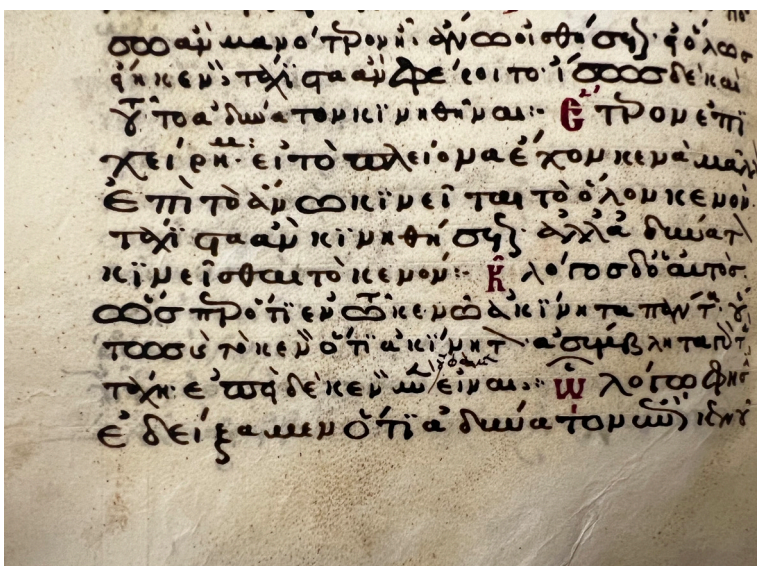 σσω ἂν μανότερον ᾖ· ἄνω οἰσθήσεται· εἰ ὅλως
εἴη κενόν, τάχιστα ἂν φέροιτο· ἴσως δὲ καὶ
τοῦτο ἀδύνατον κινηθῆναι :- Ἕτερον ἐπι
χείρημα· εἰ τὸ πλεῖον μα ἔχον κενὰ μᾶλλ
ἐπὶ τὸ ἄνω κινεῖται τὸ ὅλον κενὸν
τάχιστα ἂν κινηθήσεται· ἀλλὰ ἀδύνατ
κινεῖσθαι τὸ κενόν :- Κ λόγος δ ὁ αὐτὸς
ὥσπερ ὅτι ἐν τῷ κενῷ ἀκίνητα πάντα οὕ
τως καὶ τὸ κενὸν ὅτι ἀκίνητ· ἀσύμβλητα γὰρ τὰ
τάχη· ἐπεὶ δὲ κενὸν εἶναι :- λόγω φησ
ἐδείξαμεν ὅτι ἀδύνατον